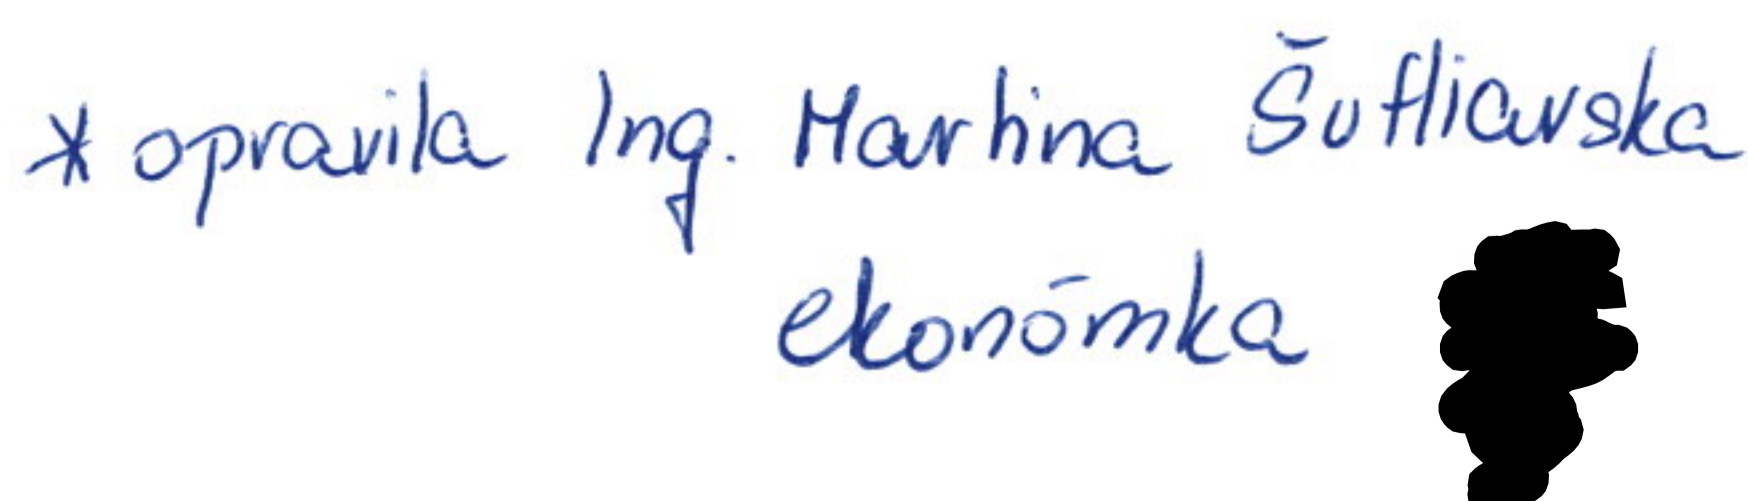 * opravila Ing. Martina Šufliarska
ekonómka